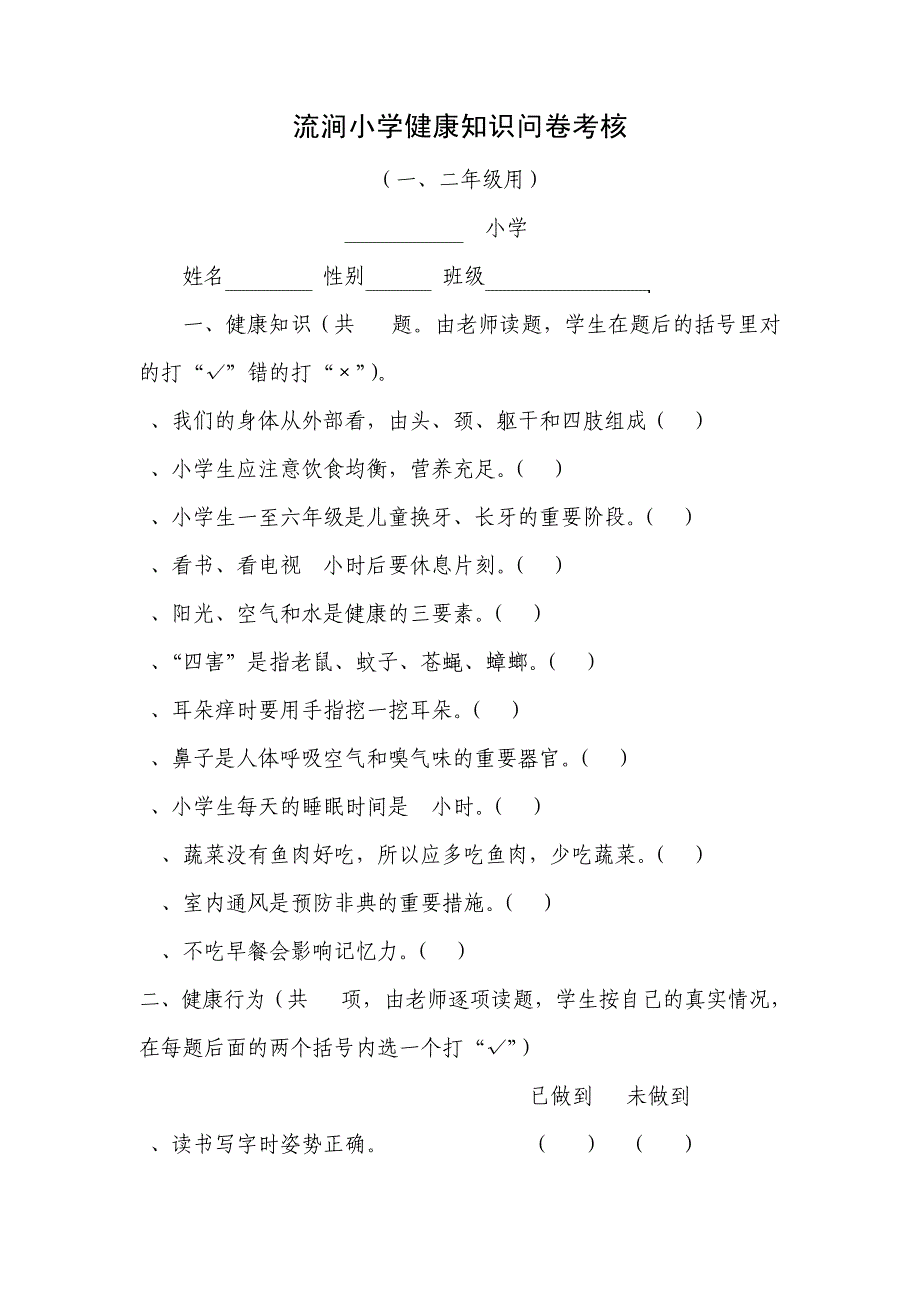 流涧小学健康知识问卷考核
（一、二年级用）
__________ 小学
姓名________ 性别______ 班级______________
一、健康知识（共 题。由老师读题，学生在题后的括号里对
的打“√”错的打“×”）。
、我们的身体从外部看，由头、颈、躯干和四肢组成（ ）
、小学生应注意饮食均衡，营养充足。（ ）
、小学生一至六年级是儿童换牙、长牙的重要阶段。（ ）
、看书、看电视 小时后要休息片刻。（ ）
、阳光、空气和水是健康的三要素。（ ）
、“四害”是指老鼠、蚊子、苍蝇、蟑螂。（ ）
、耳朵痒时要用手指挖一挖耳朵。（ ）
、鼻子是人体呼吸空气和嗅气味的重要器官。（ ）
、小学生每天的睡眠时间是 小时。（ ）
、蔬菜没有鱼肉好吃，所以应多吃鱼肉，少吃蔬菜。（ ）
、室内通风是预防非典的重要措施。（ ）
、不吃早餐会影响记忆力。（ ）
二、健康行为（共 项，由老师逐项读题，学生按自己的真实情况，
在每题后面的两个括号内选一个打“√”）
已做到 未做到
、读书写字时姿势正确。 （ ） （ ）